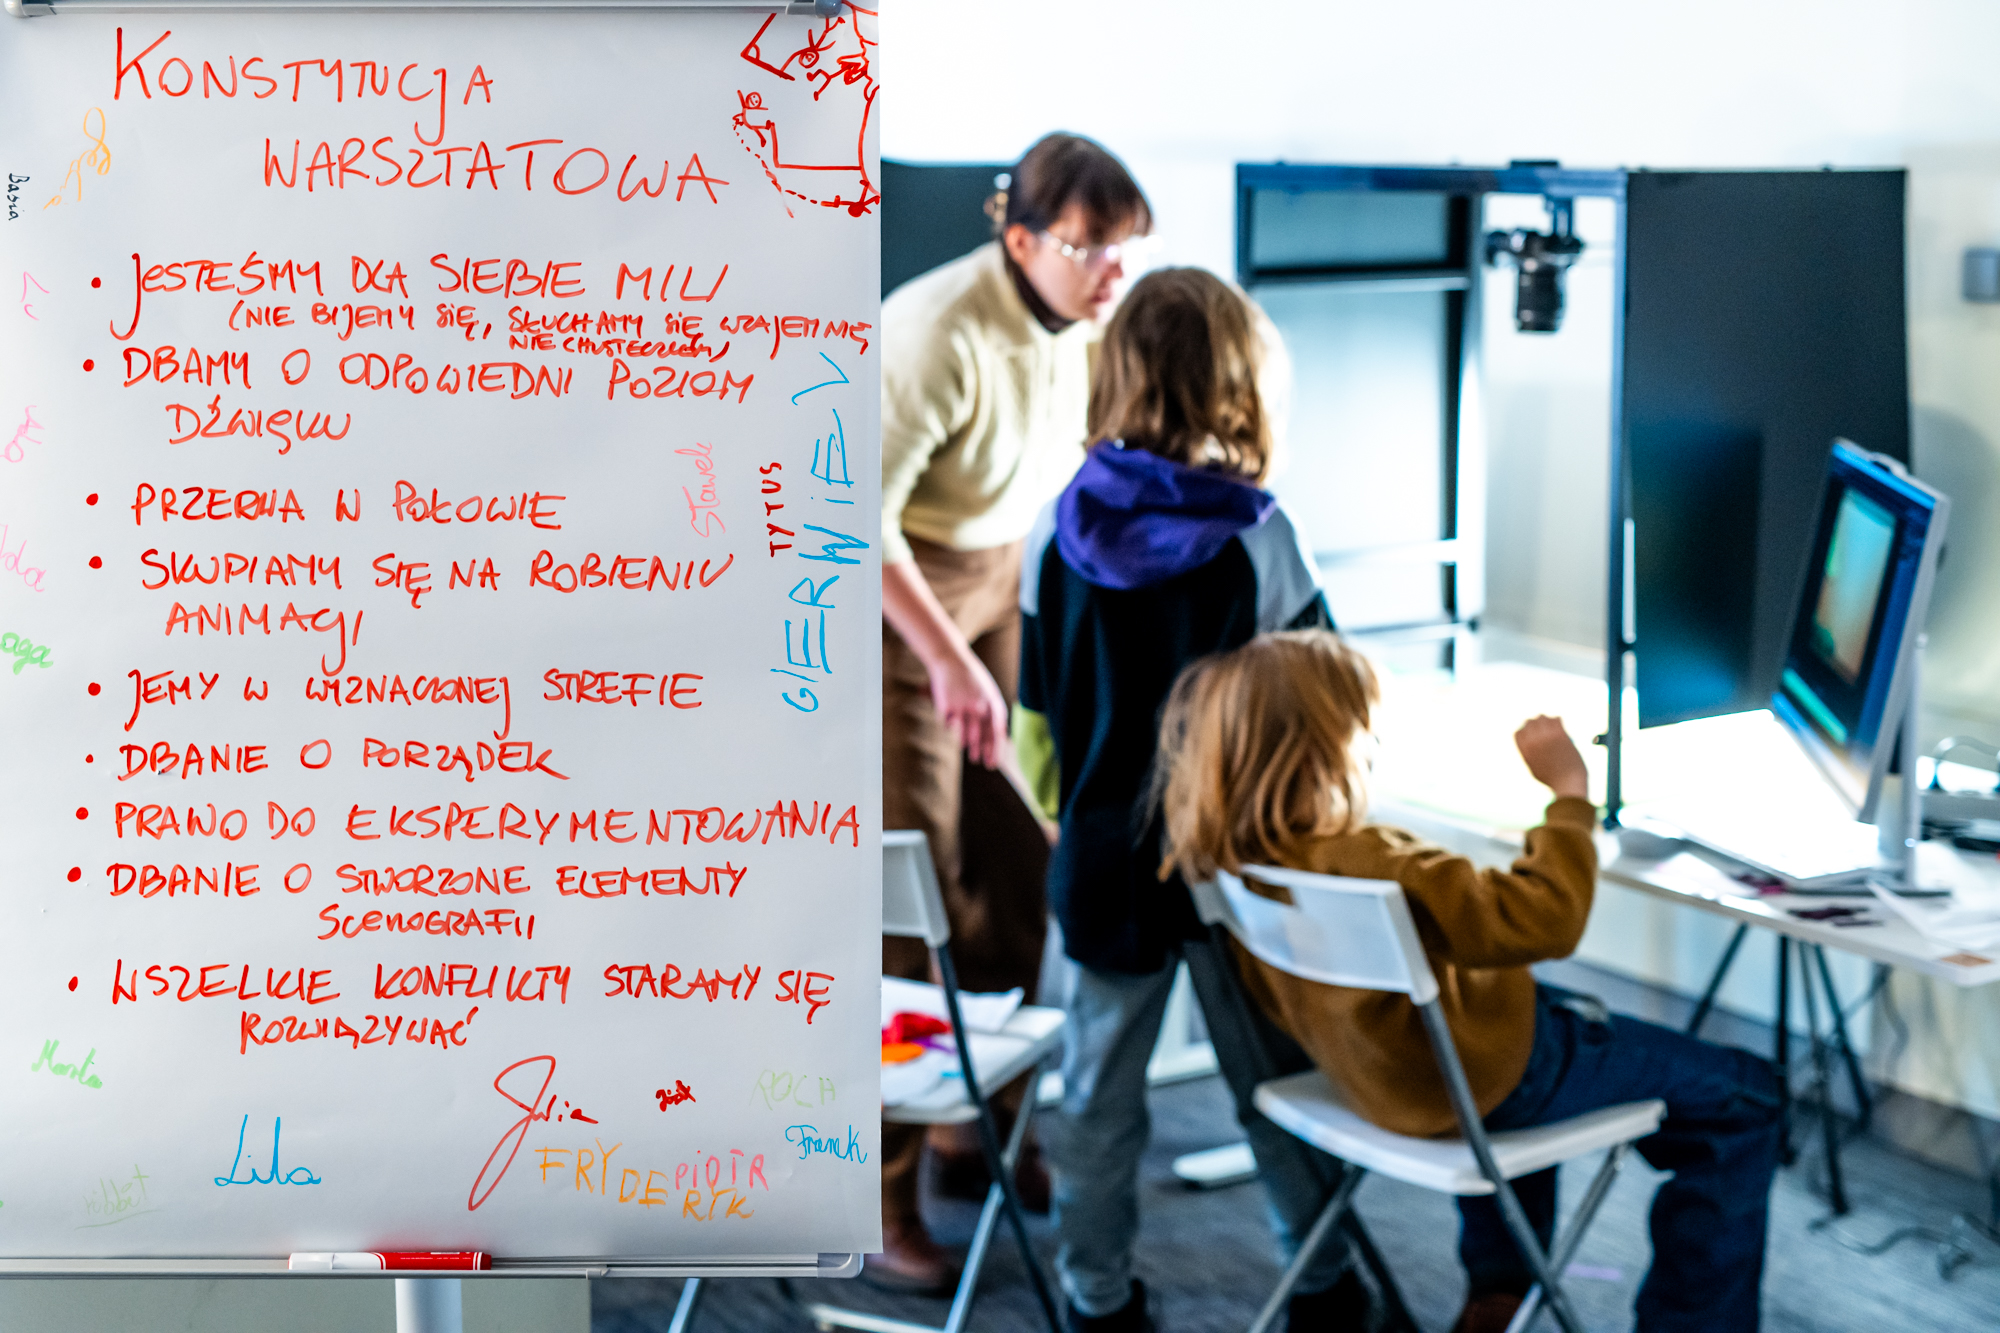 KONSTYTUCJA
WARSZTATOWA
Basia
• JESTEŚMY DLA SIEBIE MILI
(NIE BIJEMY SIĘ, SŁUCHAMY SIĘ WZAJEMNIE,
NIE
• DBAMY O ODPOWIEDNI POZIOM
DŹWIĘKU
• PRZERWA W POŁOWIE
• SKUPIAMY SIĘ NA ROBIENIU
ANIMACJI
• JEMY W WYZNACZONEJ STREFIE
• DBANIE O PORZĄDEK
• PRAWO DO EKSPERYMENTOWANIA
• DBANIE O STWORZONE ELEMENTY
SCENOGRAFII
• WSZELKIE KONFLIKTY STARAMY SIĘ
ROZWIĄZYWAĆ
Sławek
TYTUS
Julia
ROCH
Franek
Lila
FRYDERYK
PIOTR